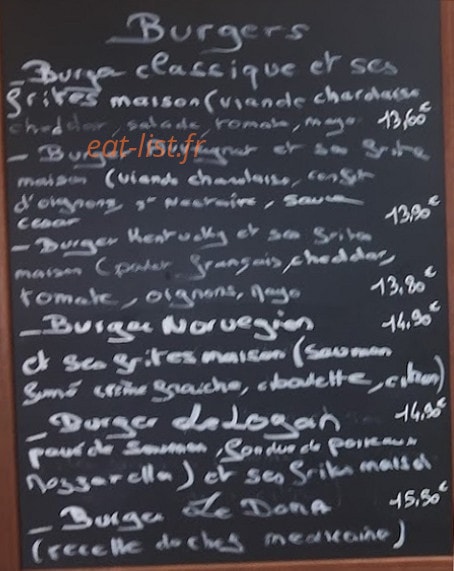 Burgers
_ Burger classique et ses
frites maison (viande charolaise
cheddar, salade, tomate, mayo 13,60€
eat-list.fr
- Burger et ses frites
maison (viande charolaise, confit
d'oignons, st Nectaire, sauce
cesar 13,90€
- Burger Kentucky et ses frites
maison (poulet français, cheddar,
tomate, oignons, mayo 13,80€
_ Burger Norvegien 14,90€
et ses frites maison (saumon
fumé crème fraiche, ciboulette, citron)
_ Burger de Logan 14,90€
pavé de saumon, fondue de poireaux
mozzarella) et ses frites maison
- Burger Le Dona 15,50€
(recette du chef mexicaine)